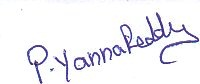 P. YannaReddy